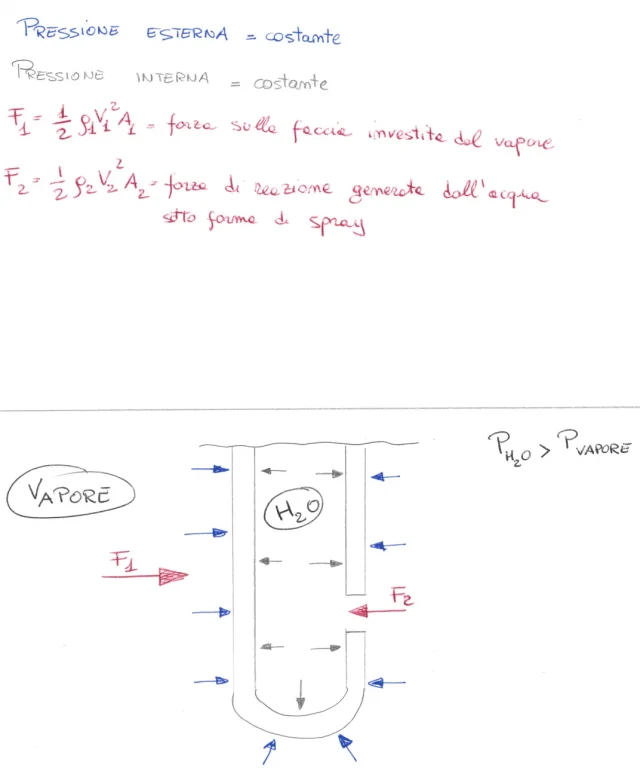 PRESSIONE ESTERNA = costante
PRESSIONE INTERNA = costante
F₁ = 1/2 ρ₁V₁²A₁ = forza sulla faccia investita dal vapore
F₂ = 1/2 ρ₂V₂²A₂ = forza di reazione generata dall'acqua
sotto forma di spray
P_H₂O > P_VAPORE
VAPORE
H₂O
F₁
F₂